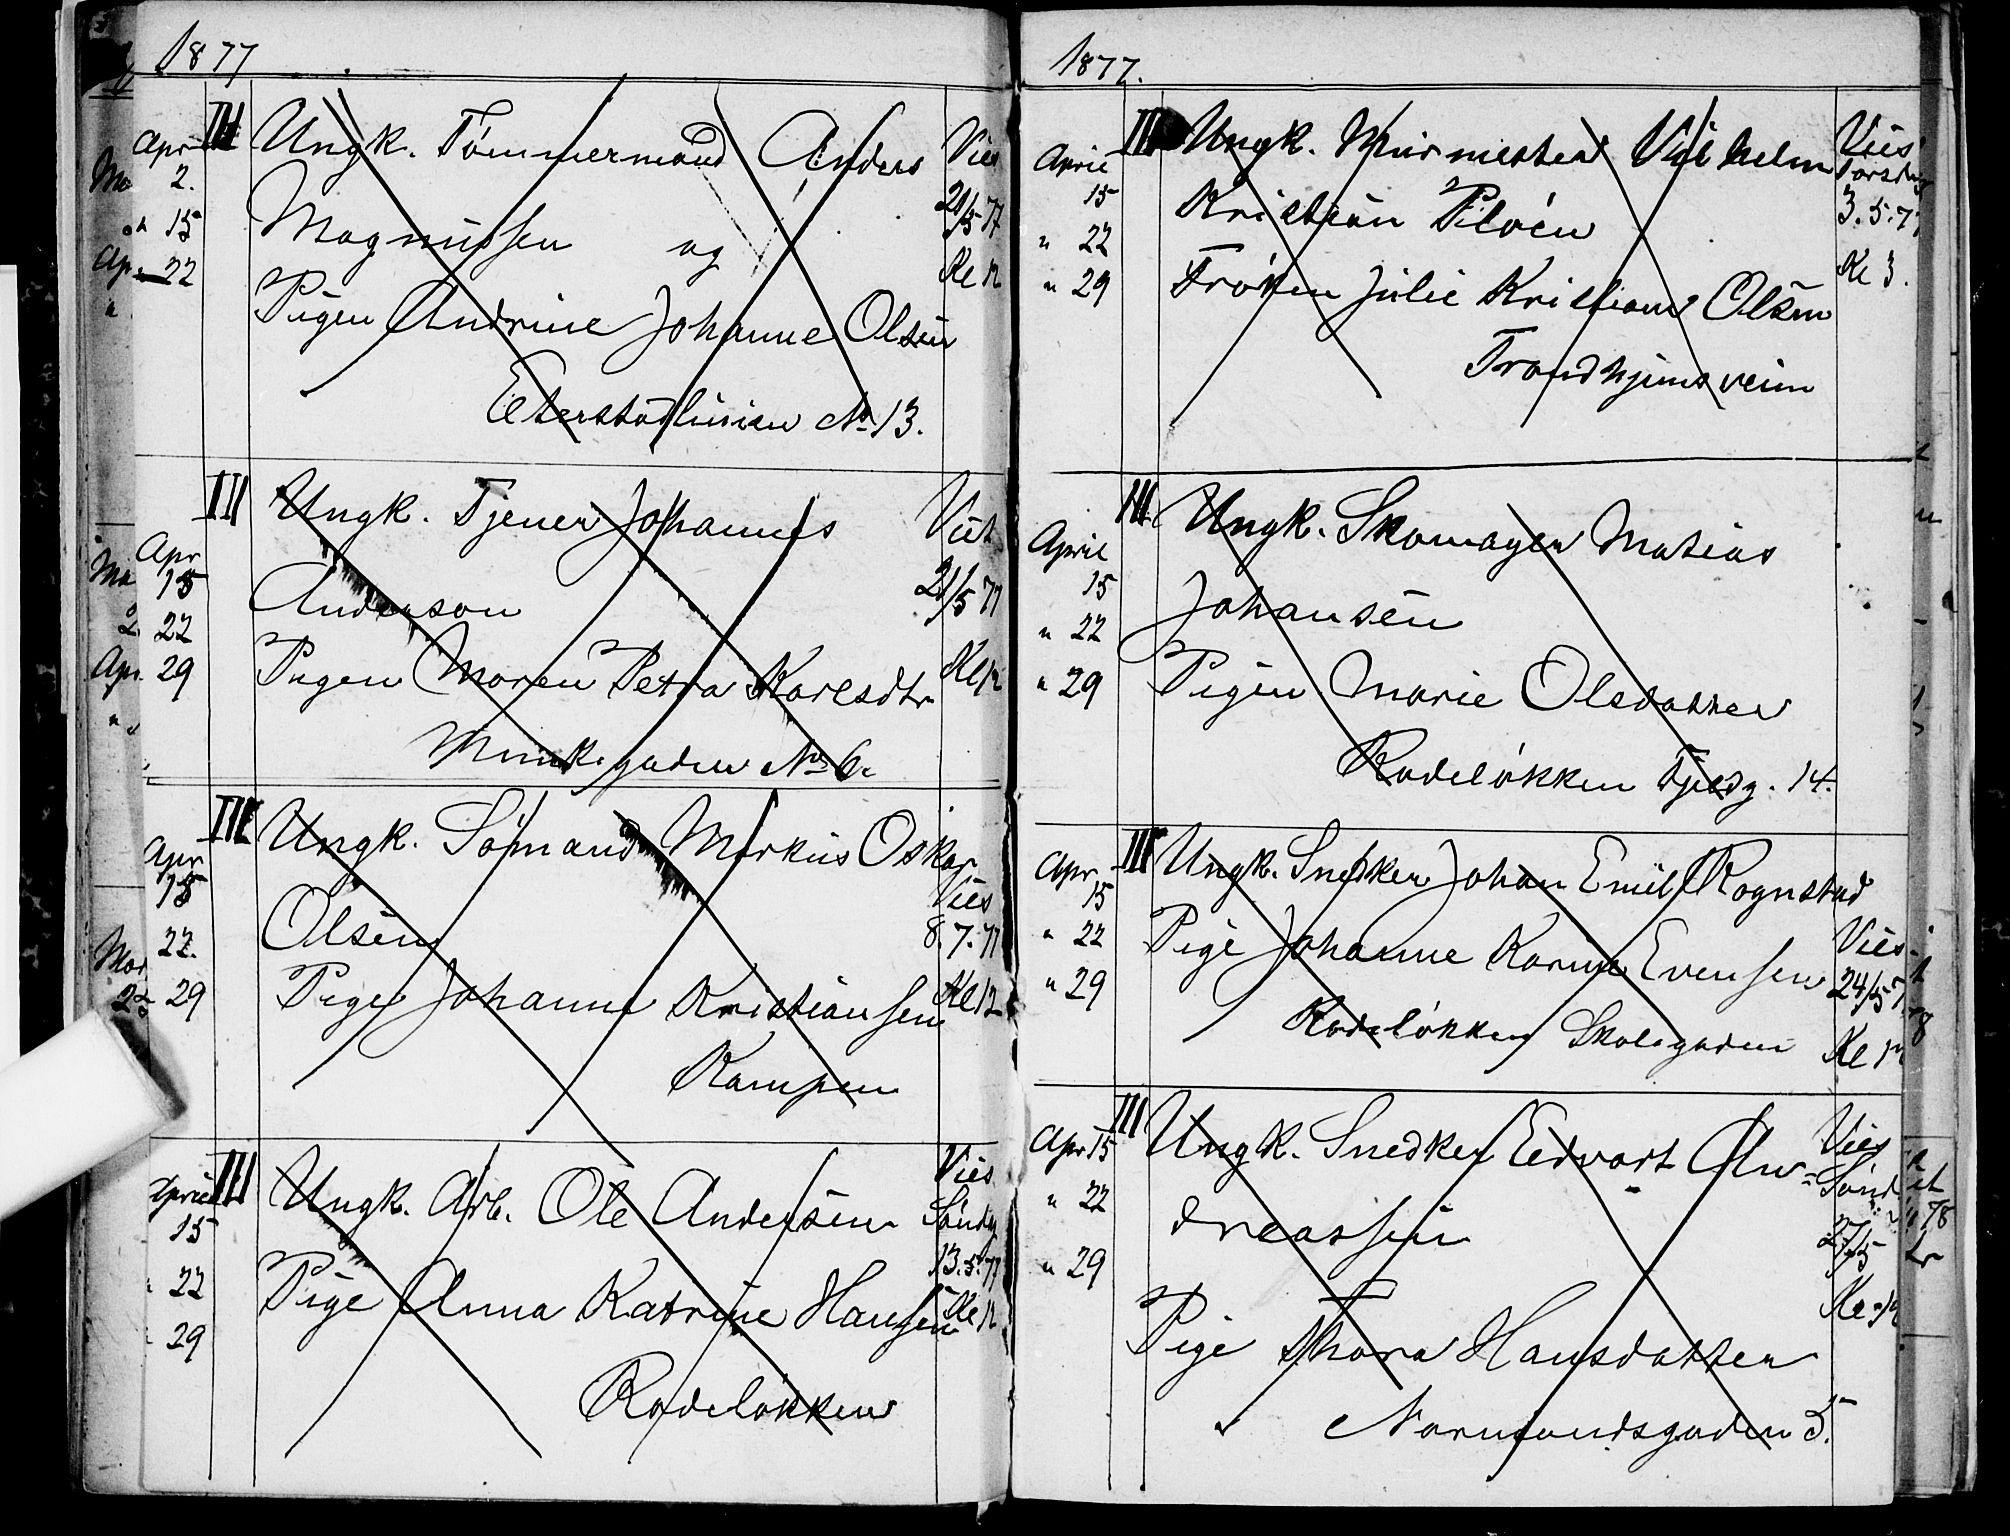 1877
Apr
2.
15
22
III
Ungk. Tømmermand Anders
Magnussen og
Pigen Andrine Johanne Olsen
Eterstadlinien No 13.
Vies
21/5 77
Kl 12
Apr
15
22
29
III
Ungk. Tjener Johannes
Anderson
Pigen Maren Petra Karlsdtr
Munkegaden No 6.
Viet
21/5 77
Kl 12
Apr
15
22.
29
III
Ungk. Sømand Markus Oskar
Olsen
Pige Johanne Kristiansen
Kampen
Vies
8.7.77
Kl 12
April
15
22
29
III
Ungk. Arb. Ole Andersen
Pige Anna Katrine Hansen
Rodeløkken
Vies
Søndg
13.5.77
Kl 12
1877.
April
15
" 22
" 29
III
Ungk. Murmester Vilhelm
Kristian
Frøken Julie Kristiane Olsen
Trondhjemsveien
Vies
Torsdag
3.5.77
Kl 3.
April
15
" 22
" 29
III
Ungk. Skomager Matias
Johansen
Pigen Marie Olsdatter
Rodeløkken Fjeldg. 14.
Apr.
15
" 22
" 29
III
Ungk. Snedker Johan Emil Rognstad
Pige Johanne Karine Evensen
Rodeløkken Skolegaden
Vies
24/5 7
Kl 12
Apr 15
" 22
" 29
III
Ungk. Snedker Edvart An-
dreassen
Pige Thora Hansdatter
Normandsgaden 5.
Vies
Sønd
27/5
Kl 12